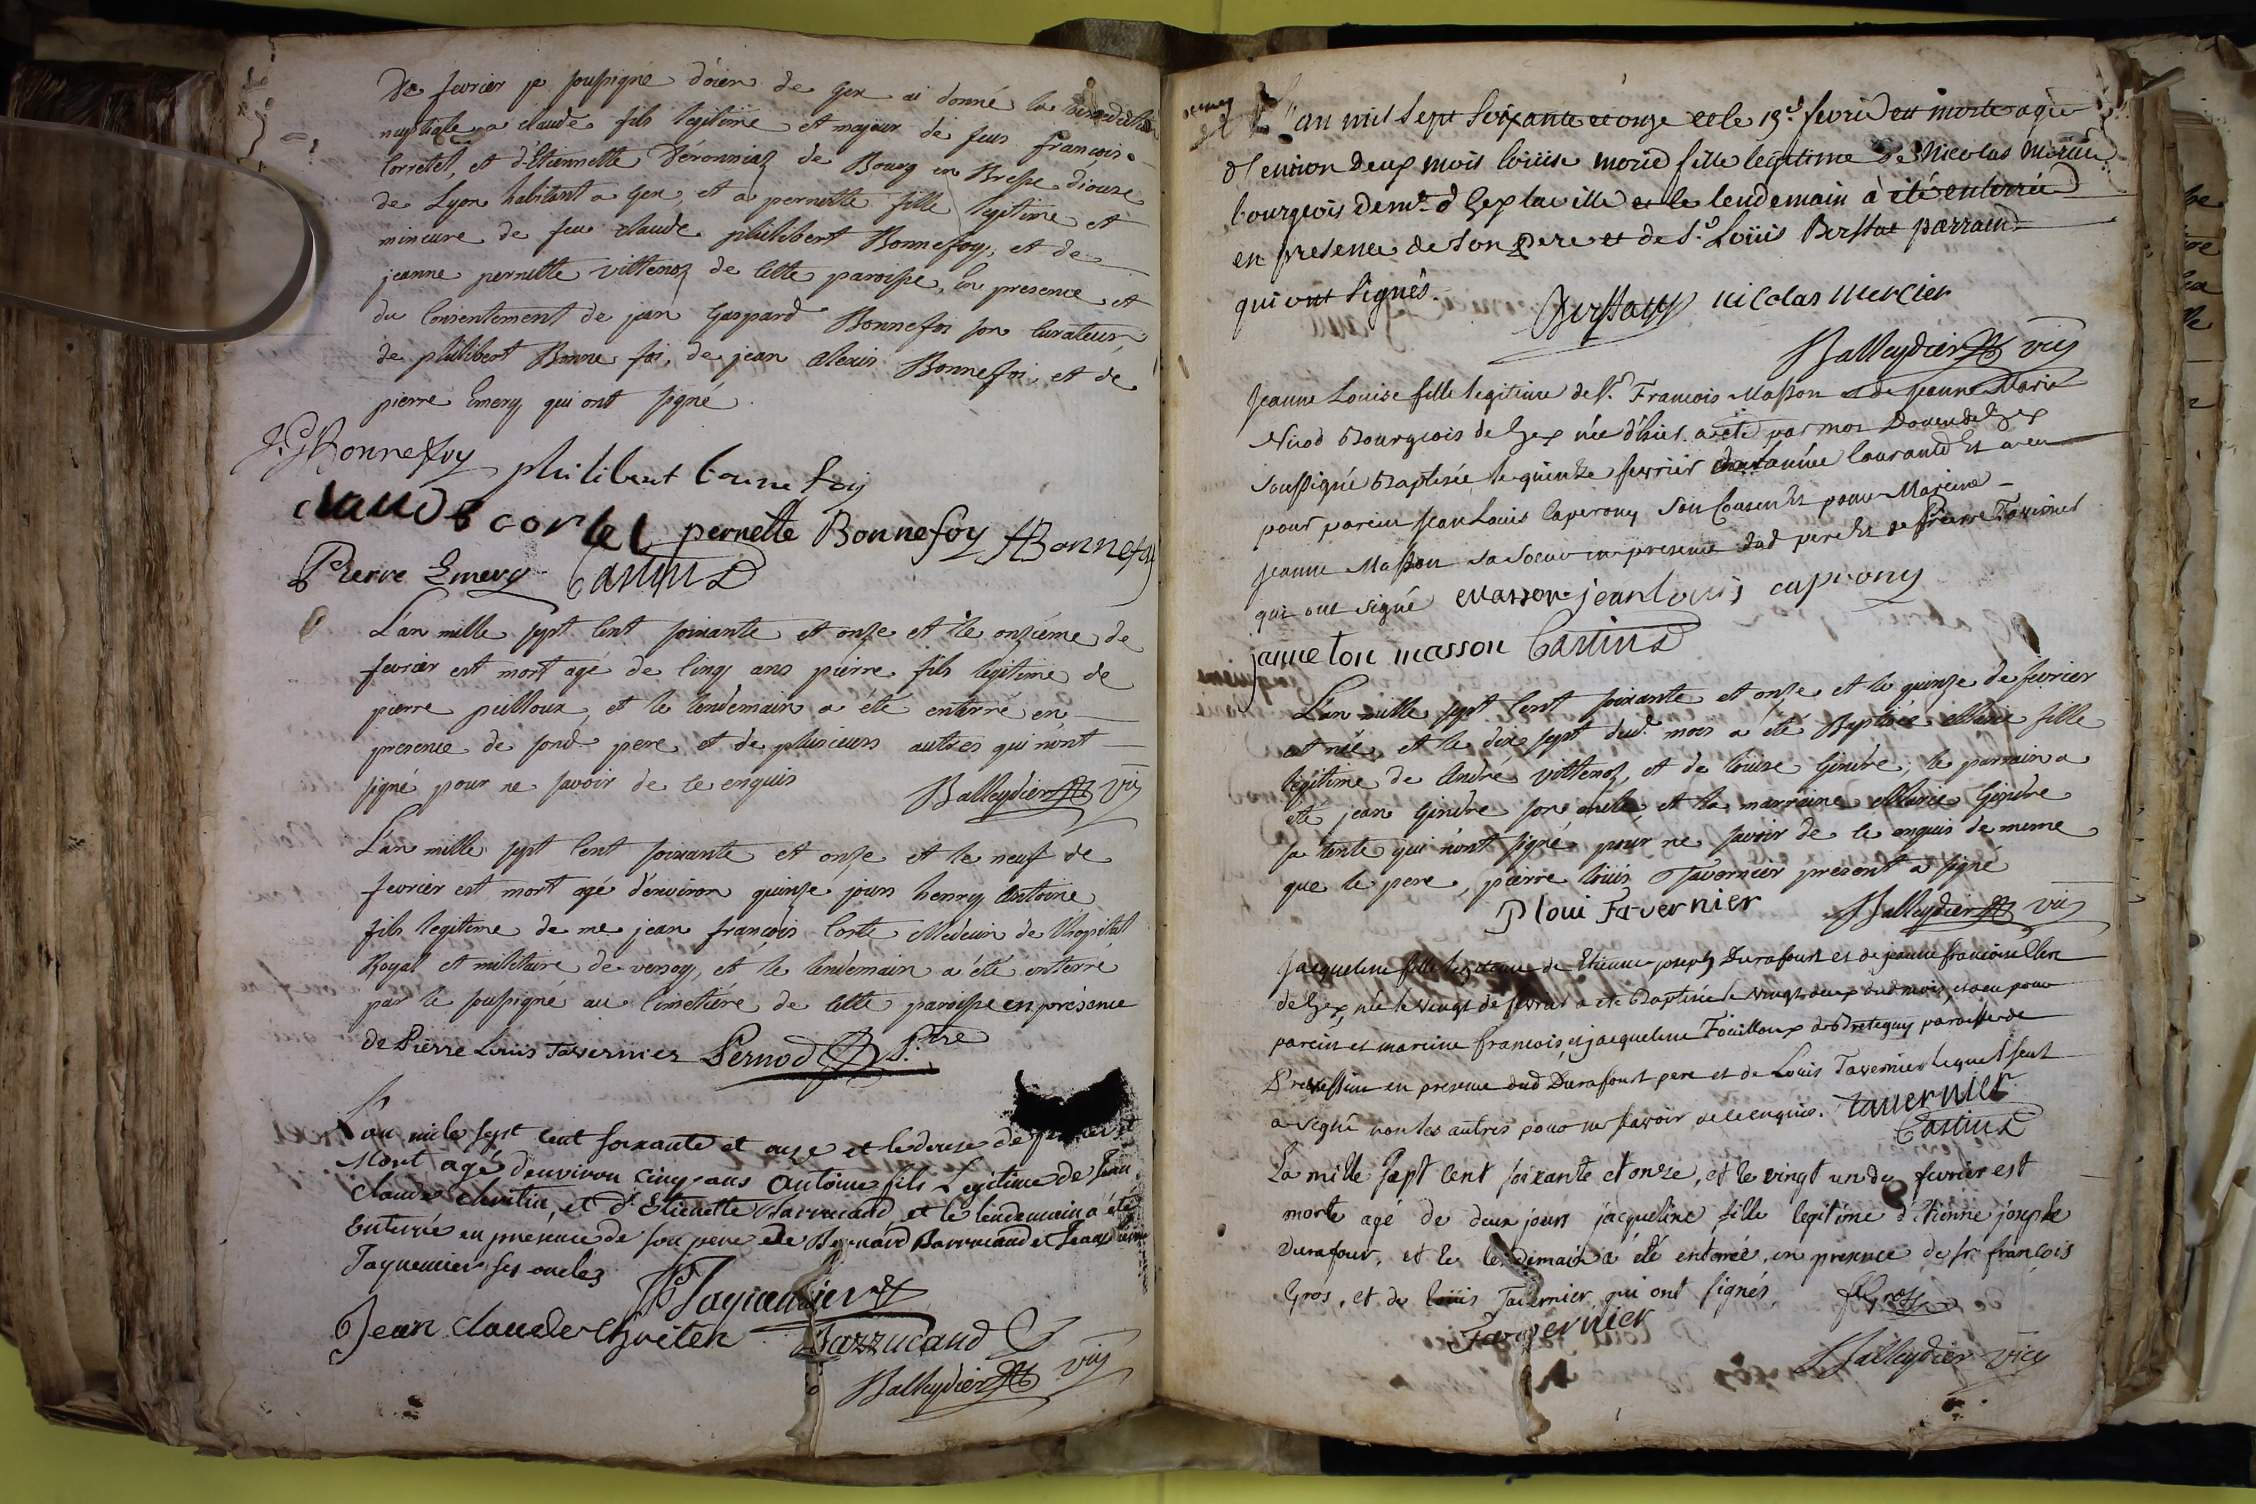 De fevrier je soussigné doïen de Gex ai donné la benediction
nuptiale a claude fils legitime et majeur de feus francois
Corretel, et d'Etiennette Véronniaz de Bourg en Bresse diocese
de Lyon habitant a Gex, et a pernette fille legitime et
mineure de feu claude philibert Bonnefoy, et de
jeanne pernette vittenoz de cette paroisse, En presence et
du Consentement de jean Gaspard Bonnefoi son Curateur
de philibert Bonne foi, de jean alexis Bonnefoi, et de
pierre Emery qui ont signé.
J: G Bonnefoy philibert bonne foy
claude cortel pernette Bonnefoy ABonnefoy
Pierre Emery Castin D
L'an mille sept Cent soixante et onze et le onziéme de
fevrier est mort agé de Cinq ans pierre fils legitime de
pierre puilloux, et le lendemain a été enterré en
presence de sond. pere et de plusieurs autres qui n'ont
signé pour ne savoir de ce enquis Balleydier vic
L'an mille sept Cent soixante et onze et le neuf de
fevrier est mort agé d'environ quinze jours henry antoine
fils legitime de me jean francois Coste Medecin de l'hopital
Royal et militaire de versoy, et le lendemain a été enterré
par le soussigné au Cimetiére de cette paroisse en présence
de Pierre Louis Tavernier Pernod P.tre
L'an mile sept cent soixante et onze et le douze de fevrier est
Mort agé d'environ cinq ans Antoine fils Legitime de Jean
Claude, et d'Etienette Barrucand et le lendemain a été
Enterré en présence de son pere de Bernard Barrucand et Jean
Jaquemier ses oncles
Jean Claude Barrucand
Balleydier vic
L'an mil Sept Soixante et onze et le 13.e fevrie est morte agée
d'environ Deux mois Louise fille legitime de Nicolas
bourgeois dem.t a Gex la ville et le lendemain à été enterrée
en presence de Son pere et de S.r Loüis parrain
qui ont Signés.
nicolas mercier
Balleydier vic
Jeanne Louise fille legitime de S.r Francois Masson et de Jeanne Marie
Nicod Bourgeois de Gex née d'hier a eté par moi Doyen de Gex
soussigné Baptisée le quinze fevrier année courante Et a eu
pour parein Jean Louis Caperony son Cousin Et pour Mareine
Jeanne Masson sa Soeur en presence dud pere Et de Pierre Tavernier
qui ont signé masson jean louis caperony
janneton masson Castin D
L'an mille sept Cent soixante et onze et le quinze de fevrier
est née, et le dix sept dud. mois a été Baptisée Marie fille
legitime de André vittenoz, et de louise Gindre, le parrain a
été jean Gindre son oncle, et la marraine Marie Gindre
sa tente qui n'ont signé pour ne savoir de ce enquis de meme
que le pere, pierre loüis Tavernier present a signé
P loui Tavernier Balleydier vic
Jacqueline fille legitime de Etienne joseph Durafour et de jeanne francoise
de Gex née le vingt de fevrier a eté Baptisée le vingt deux dud mois, et a eu pour
parein et mareine francois et jacqueline Fouilloux de Pretegny paroisse de
Prevessin en presence dud Durafourt pere et de Louis Tavernier lequel seul
a signé non les autres pour ne savoir de ce enquis. Tavernier
Castin D
La mille Sept Cent soixante et onze, et le vingt un de fevrier est
morte agé de deux jours jacqueline fille legitime d'étienne josephe
Durafour, et le lendemain a été enterrée, en presence de sr. françois
Gros, et de loüis Tavernier qui ont signés fGros
Tavernier
Balleydier vic